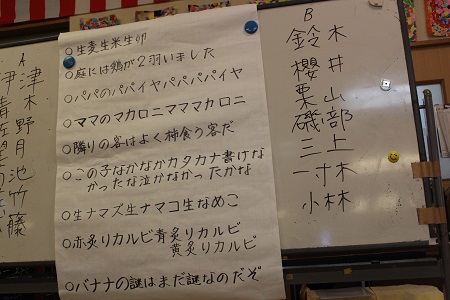 A
伊津
青木
佐野
望月
池
竹
藤
○生麦生米生卵
○庭には鶏が2羽いました
○パパのパパイヤパパパパイヤ
○ママのマカロニマママカロニ
○隣りの客はよく柿食う客だ
○この子なかなかカタカナ書けな
かったな泣かなかったかな
○生ナマズ生ナマコ生なめこ
○赤炙りカルビ青炙りカルビ
黄炙りカルビ
○バナナの謎はまだ謎なのだぞ
B
鈴木
櫻井
栗山
磯部
三上
一寸木
小林